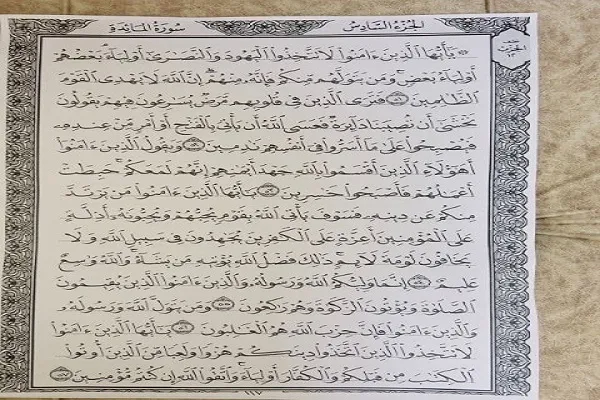 الجزء السادس سورة المائدة
۞ يَٰٓأَيُّهَا ٱلَّذِينَ ءَامَنُوا۟ لَا تَتَّخِذُوا۟ ٱلْيَهُودَ وَٱلنَّصَٰرَىٰٓ أَوْلِيَآءَ بَعْضُهُمْ
أَوْلِيَآءُ بَعْضٍ وَمَن يَتَوَلَّهُم مِّنكُمْ فَإِنَّهُۥ مِنْهُمْ إِنَّ ٱللَّهَ لَا يَهْدِى ٱلْقَوْمَ
ٱلظَّٰلِمِينَ ۝ فَتَرَى ٱلَّذِينَ فِى قُلُوبِهِم مَّرَضٌ يُسَٰرِعُونَ فِيهِمْ يَقُولُونَ
نَخْشَىٰٓ أَن تُصِيبَنَا دَآئِرَةٌ فَعَسَى ٱللَّهُ أَن يَأْتِىَ بِٱلْفَتْحِ أَوْ أَمْرٍ مِّنْ عِندِهِۦ
فَيُصْبِحُوا۟ عَلَىٰ مَآ أَسَرُّوا۟ فِىٓ أَنفُسِهِمْ نَٰدِمِينَ ۝ وَيَقُولُ ٱلَّذِينَ ءَامَنُوٓا۟
أَهَٰٓؤُلَآءِ ٱلَّذِينَ أَقْسَمُوا۟ بِٱللَّهِ جَهْدَ أَيْمَٰنِهِمْ إِنَّهُمْ لَمَعَكُمْ حَبِطَتْ
أَعْمَٰلُهُمْ فَأَصْبَحُوا۟ خَٰسِرِينَ ۝ يَٰٓأَيُّهَا ٱلَّذِينَ ءَامَنُوا۟ مَن يَرْتَدَّ
مِنكُمْ عَن دِينِهِۦ فَسَوْفَ يَأْتِى ٱللَّهُ بِقَوْمٍ يُحِبُّهُمْ وَيُحِبُّونَهُۥٓ أَذِلَّةٍ
عَلَى ٱلْمُؤْمِنِينَ أَعِزَّةٍ عَلَى ٱلْكَٰفِرِينَ يُجَٰهِدُونَ فِى سَبِيلِ ٱللَّهِ وَلَا
يَخَافُونَ لَوْمَةَ لَآئِمٍ ذَٰلِكَ فَضْلُ ٱللَّهِ يُؤْتِيهِ مَن يَشَآءُ وَٱللَّهُ وَٰسِعٌ
عَلِيمٌ ۝ إِنَّمَا وَلِيُّكُمُ ٱللَّهُ وَرَسُولُهُۥ وَٱلَّذِينَ ءَامَنُوا۟ ٱلَّذِينَ يُقِيمُونَ
ٱلصَّلَوٰةَ وَيُؤْتُونَ ٱلزَّكَوٰةَ وَهُمْ رَٰكِعُونَ ۝ وَمَن يَتَوَلَّ ٱللَّهَ وَرَسُولَهُۥ
وَٱلَّذِينَ ءَامَنُوا۟ فَإِنَّ حِزْبَ ٱللَّهِ هُمُ ٱلْغَٰلِبُونَ ۝ يَٰٓأَيُّهَا ٱلَّذِينَ ءَامَنُوا۟
لَا تَتَّخِذُوا۟ ٱلَّذِينَ ٱتَّخَذُوا۟ دِينَكُمْ هُزُوًا وَلَعِبًا مِّنَ ٱلَّذِينَ أُوتُوا۟
ٱلْكِتَٰبَ مِن قَبْلِكُمْ وَٱلْكُفَّارَ أَوْلِيَآءَ وَٱتَّقُوا۟ ٱللَّهَ إِن كُنتُم مُّؤْمِنِينَ ۝